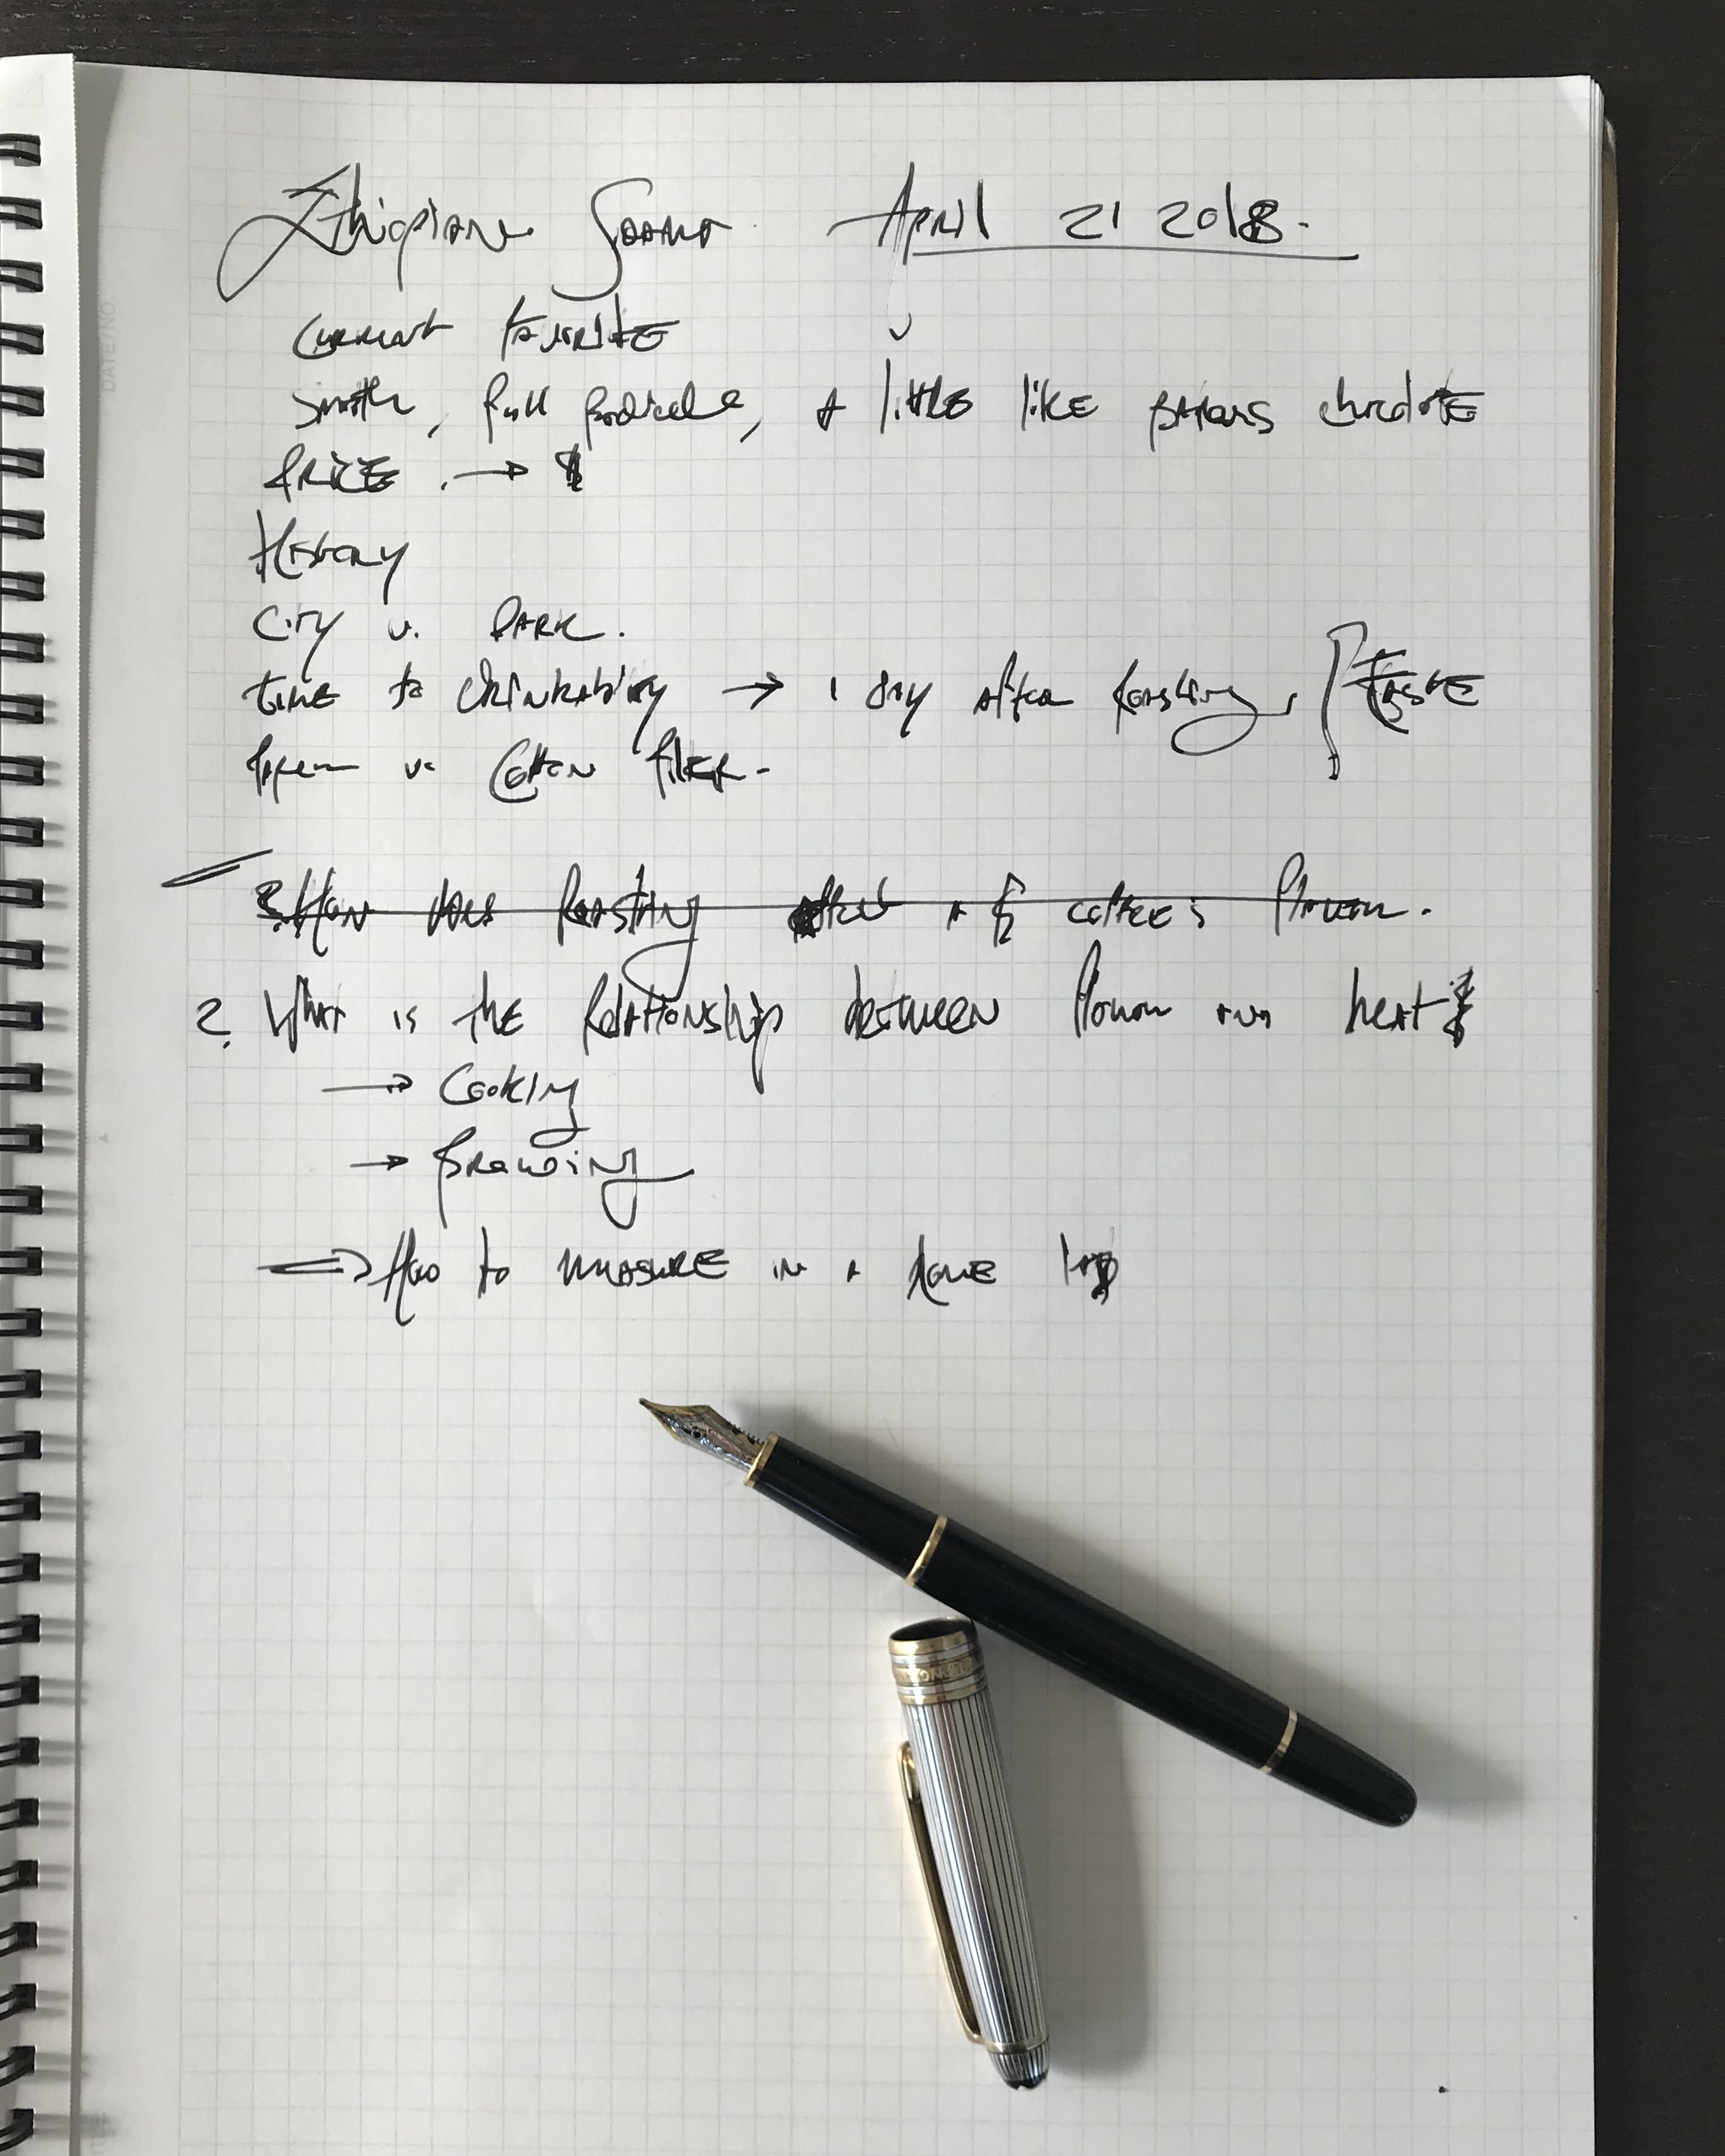 Ethiopian April 21 2018.
current favorite
smooth, full bodied, a little like bakers chocolate
PRICE → $
History
City v. DARK.
time to drinkability → 1 day after roasting, TASTE
v. Cotton filter.
How does Roasting affect a coffee's flavor.
? What is the Relationship between flavor and heat
→ Cooking
→ Brewing
⇒ How to measure in a home lab
DATE/NO.